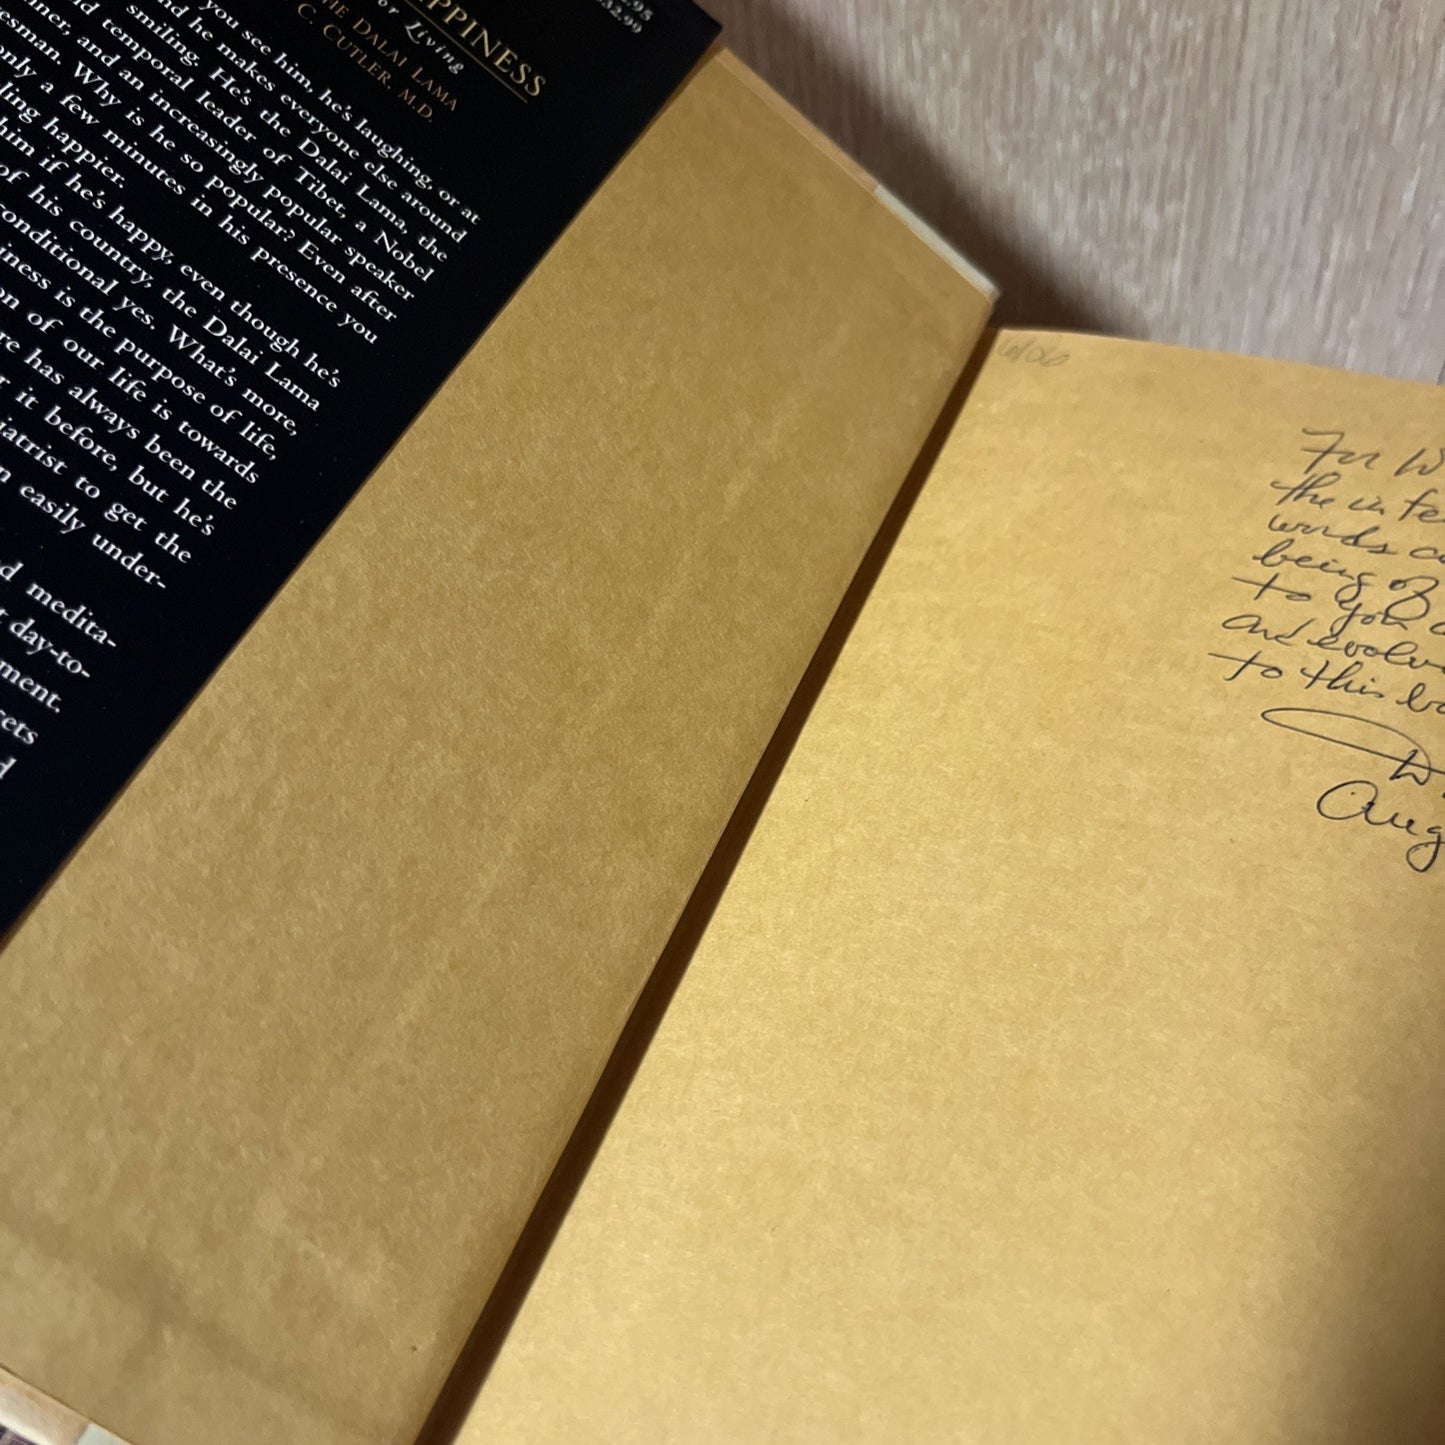 .95
5.99
PPINESS
or Living
HE DALAI LAMA
C. CUTLER, M.D.
you see him, he's laughing, or at
nd he makes everyone else around
smiling. He's the Dalai Lama, the
d temporal leader of Tibet, a Nobel
ner, and an increasingly popular speaker
esman. Why is he so popular? Even after
only a few minutes in his presence you
ling happier.
him if he's happy, even though he's
of his country, the Dalai Lama
conditional yes. What's more,
iness is the purpose of life,
on of our life is towards
re has always been the
r it before, but he's
iatrist to get the
n easily under-
d medita-
t day-to-
ment.
cets
d
6/06
For W
the inte
words
being of
to you
and evolve
to this bo
Aug